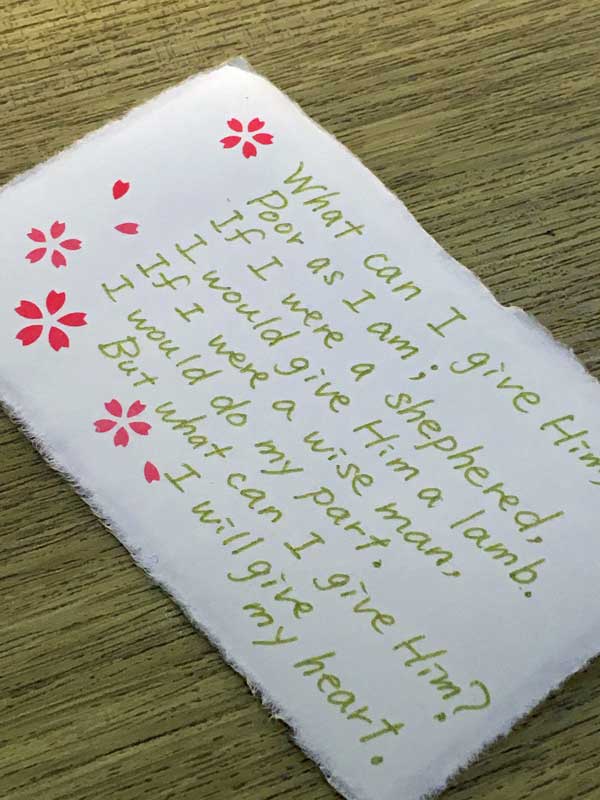 What can I give Him,
Poor as I am;
If I were a shephered,
I would give Him a lamb.
If I were a wise man,
I would do my part.
But what can I give Him?
I will give
my heart.